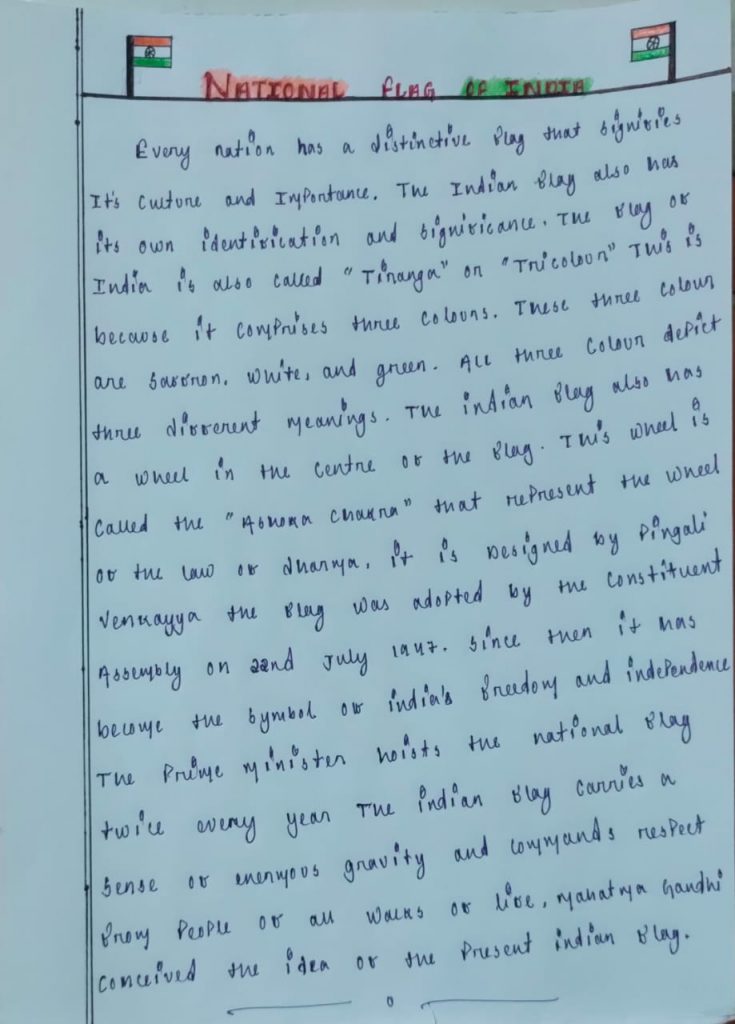 NATIONAL FLAG OF INDIA
Every nation has a distinctive flag that signifies
It's culture and Importance. The Indian flag also has
its own identification and significance. The flag of
India is also called "Tiranga" or "Tricolour" This is
because it comprises three colours. These three colour
are saffron, white, and green. All three colour depict
three different meanings. The indian flag also has
a wheel in the centre of the flag. This wheel is
called the "Ashoka Chakra" that represent the wheel
of the law of dharma, it is Designed by Pingali
Venkayya the flag was adopted by the constituent
Assembly on 22nd July 1947. Since then it has
become the symbol of india's freedom and independence
The Prime minister hoists the national flag
twice every year The indian flag carries a
sense of enermous gravity and commands respect
from people of all walks of life, Mahatma Gandhi
conceived the idea of the present indian flag.